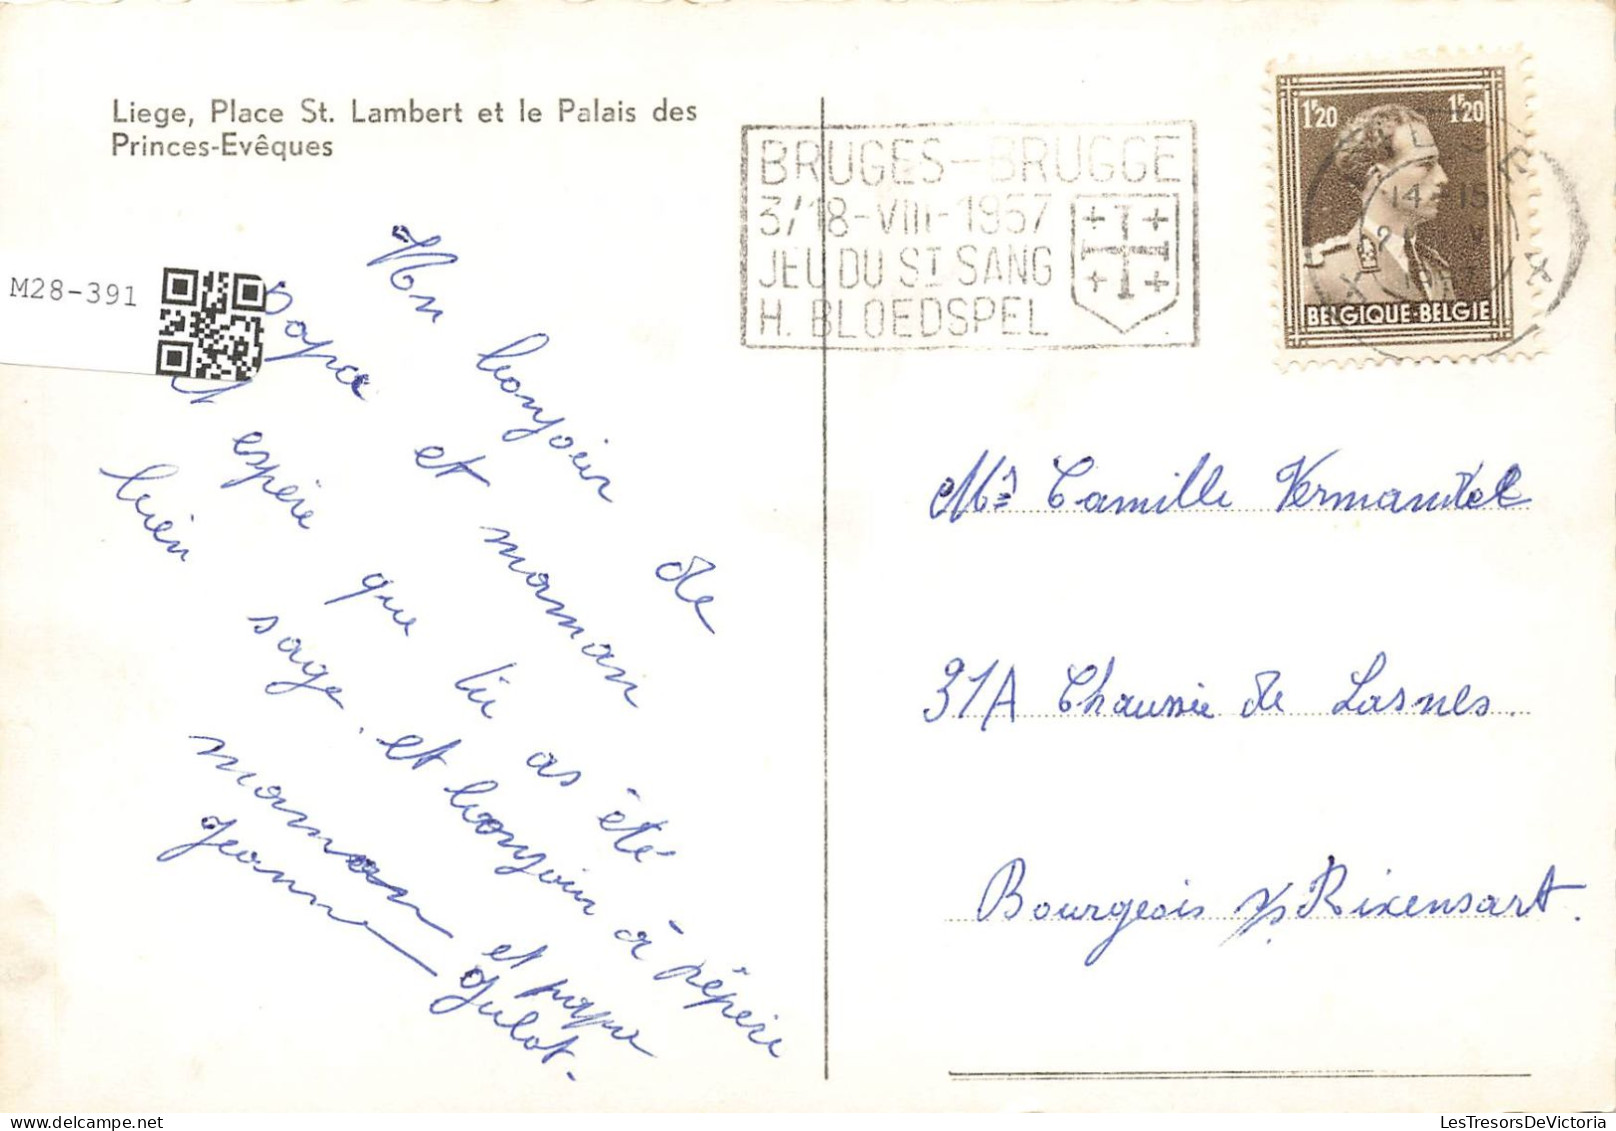 Liege, Place St. Lambert et le Palais des
Princes-Evêques
BRUGES-BRUGGE
3/18-VIII-1957
JEU DU ST SANG
H. BLOEDSPEL
1F20 1F20
14-15
BELGIQUE-BELGIE
M28-391
Un bonjour de
Papa et maman
espère que tu as été
bien sage. et bonjour à pépère
maman et papa
Jeanne Julot.
Mr Camille Vermandel
31A Chaussée de Lasnes.
Bourgeois s/ Rixensart.
LesTresorsDeVictoria